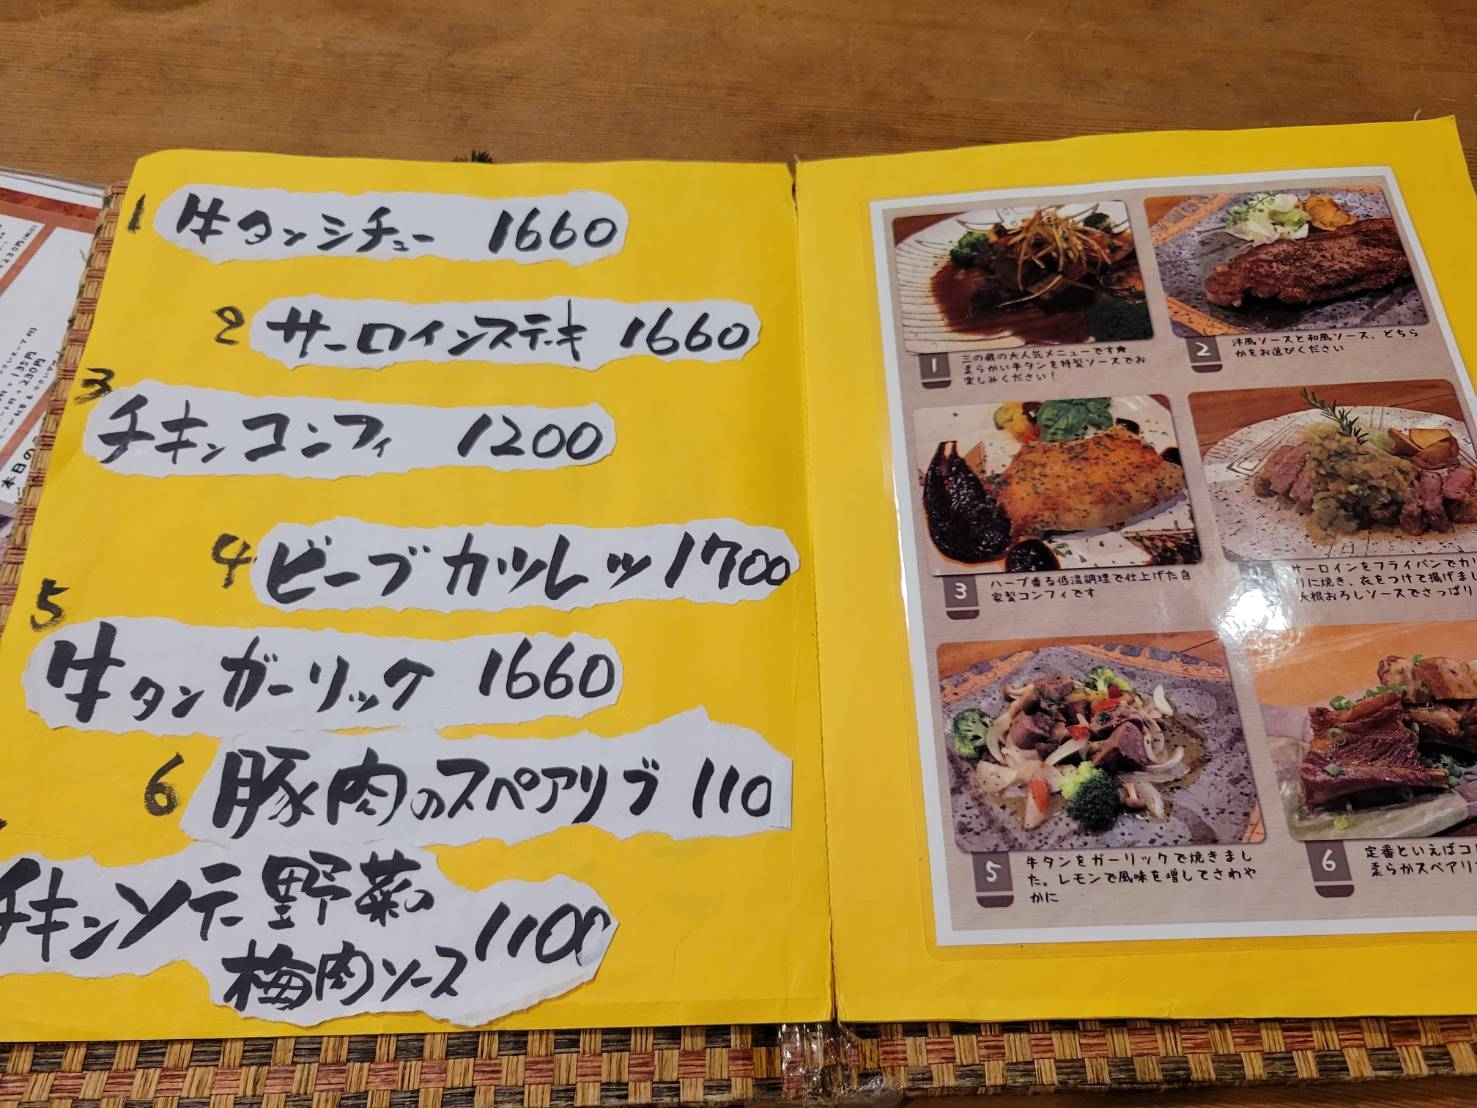 1 牛タンシチュー 1660
2 サーロインステーキ 1660
3 チキンコンフィ 1200
4 ビーフカツレツ 1700
5 牛タンガーリック 1660
6 豚肉のスペアリブ 110
チキンソテー野菜の
梅肉ソース 1100
1
三の蔵の大人気メニューです★
柔らかい牛タンを特製ソースでお
楽しみください！
2
洋風ソースと和風ソース、どちら
かをお選びください
3
ハーブ香る低温調理で仕上げた自
家製コンフィです
サーロインをフライパンでカリ
りに焼き、衣をつけて揚げまし
大根おろしソースでさっぱり
5
牛タンをガーリックで焼きまし
た。レモンで風味を増してさわや
かに
6
定番といえばコレ
柔らかスペアリ
230円(税込)
135円
230円
本日の